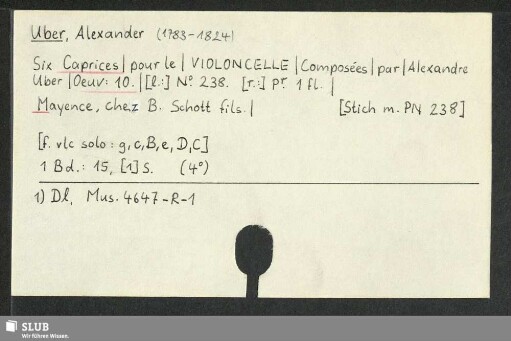 Uber, Alexander (1783-1824)
Six Caprices | pour le | VIOLONCELLE | Composées | par | Alexandre
Uber | Oeuv: 10. | [l.:] No. 238. [r.:] Pr. 1 fl. |
Mayence, chez B. Schott fils. | [Stich m. PN 238]
[f. vlc solo: g, c, B, e, D, C]
1 Bd.: 15, [1] S. (4°)
1) Dl, Mus. 4647-R-1
SLUB
Wir führen Wissen.